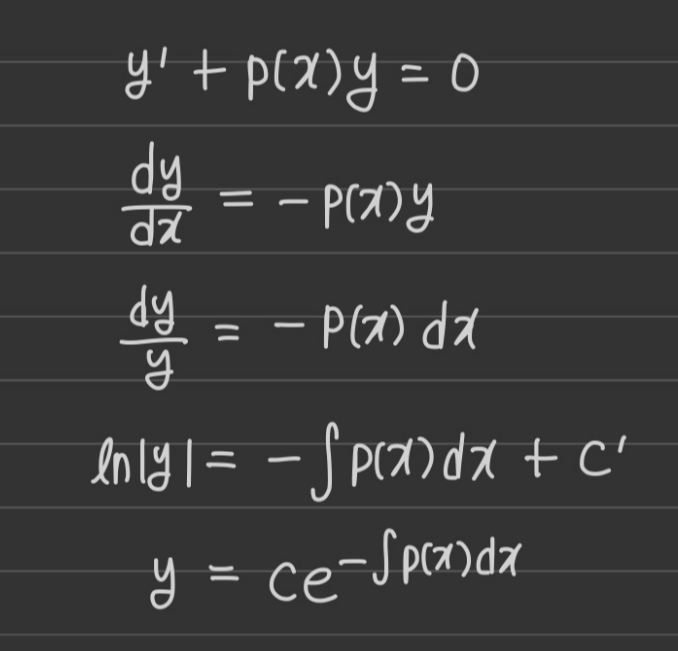 y' + p(x)y = 0
dy/dx = - p(x)y
dy/y = - p(x) dx
ln|y| = - ∫p(x)dx + c'
y = ce^{-∫p(x)dx}